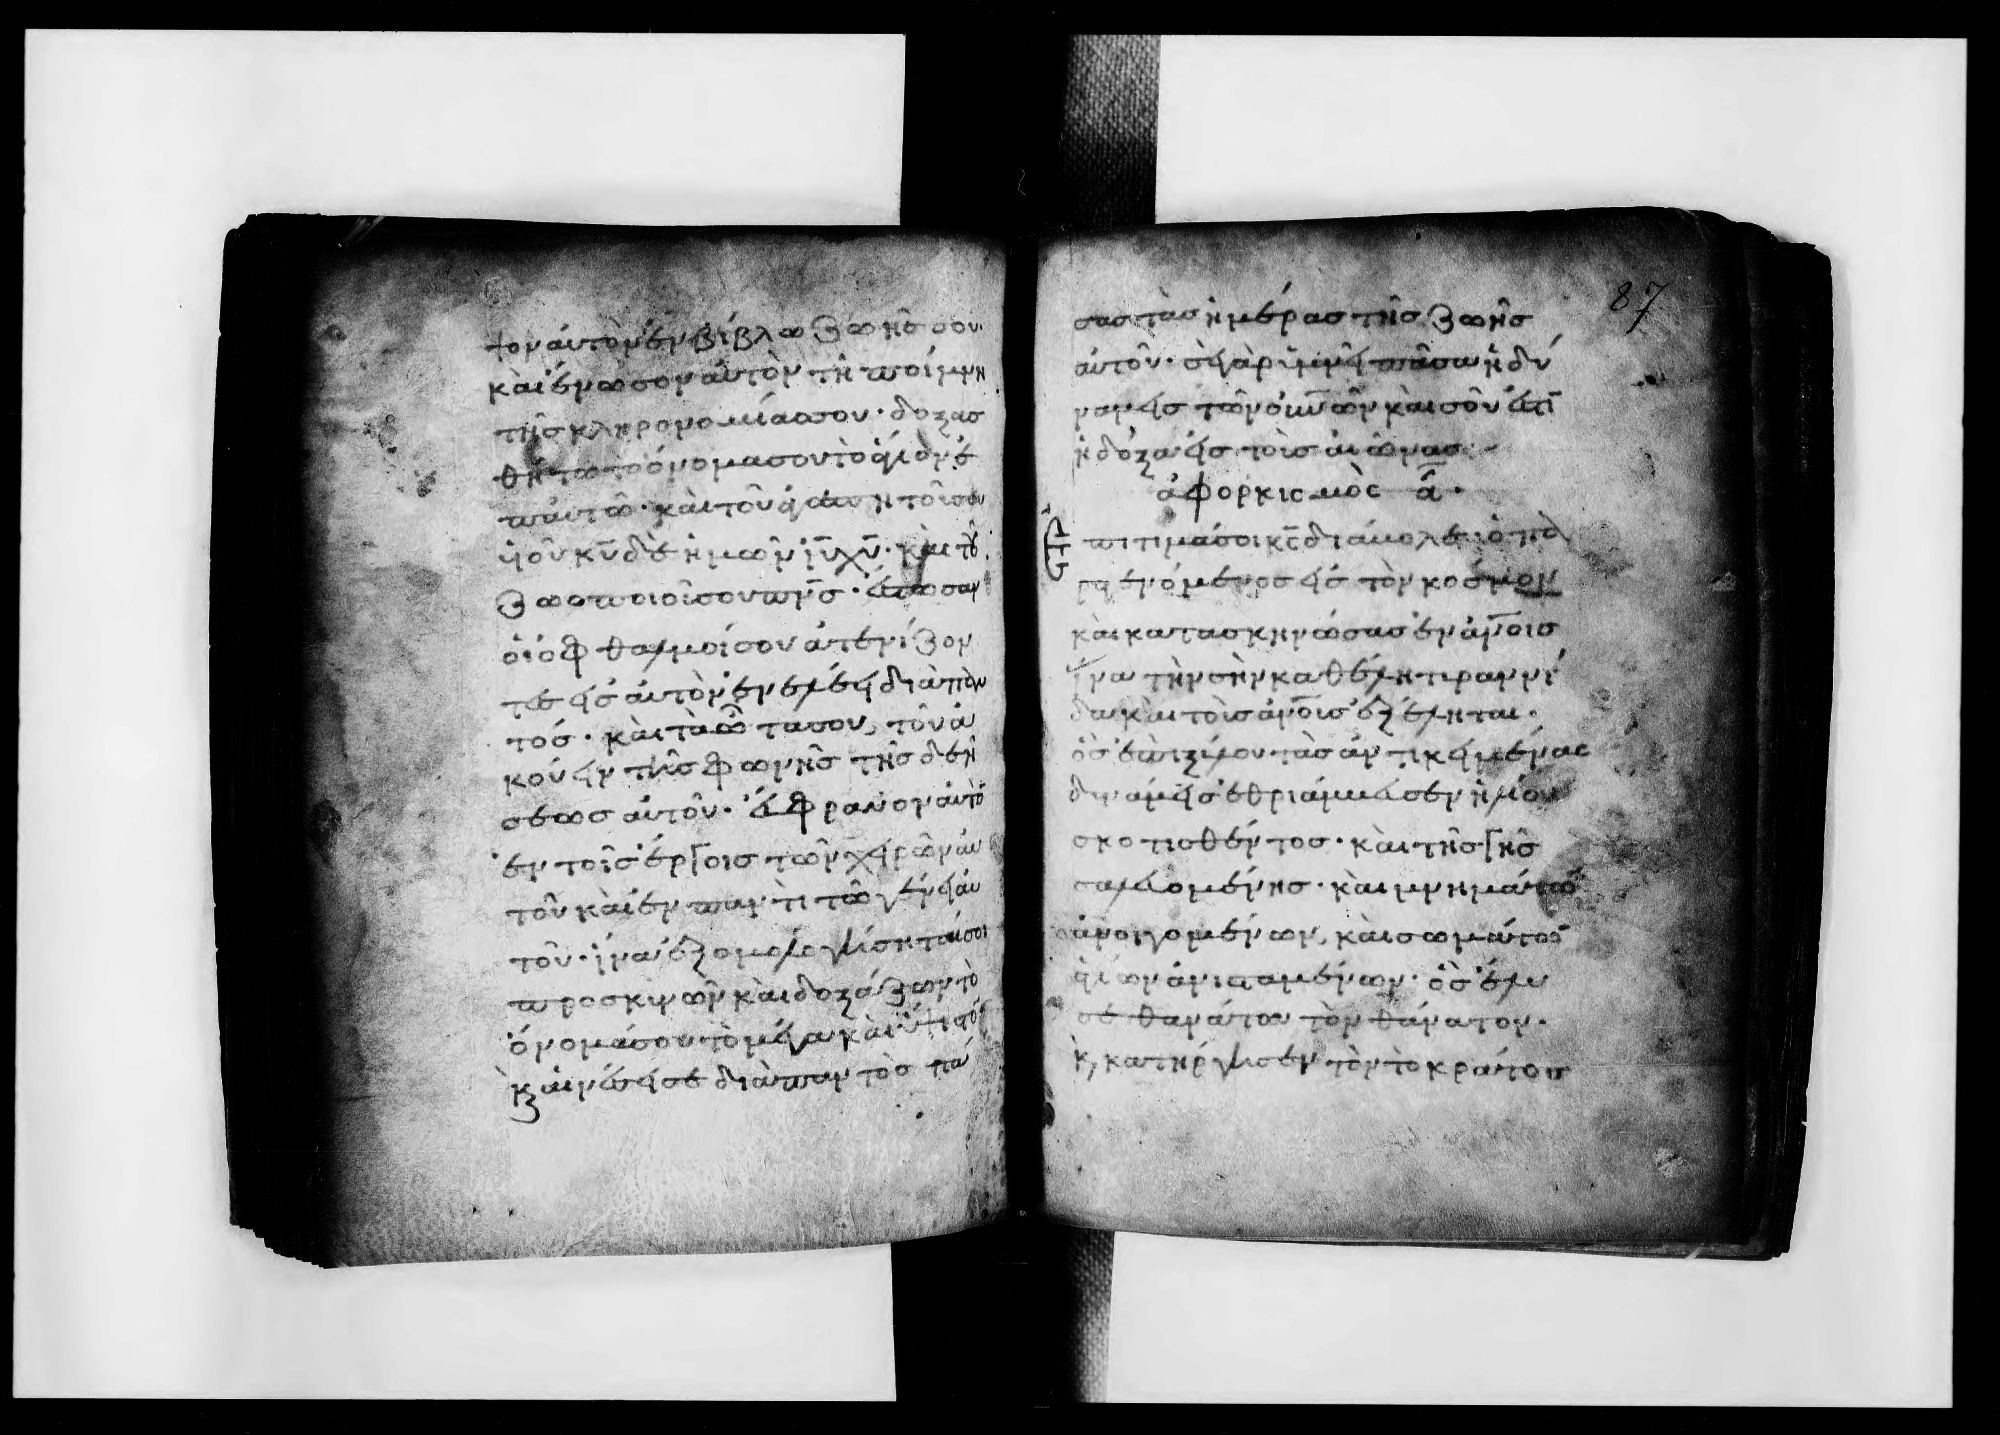 τον αυτὸν ἐν βίβλω ζωῆς σου·
καὶ ἕνωσον αὐτὸν τῆ ποίμνη
τῆς κληρονομίας σου· δοξασ
θήτω τὸ ὄνομα σου τὸ ἅγιον ἐ
π' αὐτῶ· καὶ τοῦ ἀγαπητοῦ σου
ὑιοῦ κ̅υ̅ δὲ ἡμῶν ι̅υ̅ χ̅υ̅· καὶ τοῦ
ζωοποιοῦ σου π̅ν̅ς̅· ἔστωσαν
ὁι ὀφθαλμοί σου ἀτενίζον
τες εἰς αὐτὸν ἐν ἐλέει διαπαν
τός· καὶ τὰ ὦτα σου, τοῦ ἀ
κούειν τῆς φωνῆς τῆς δεή
σεως αὐτοῦ· εὔφρανον αὐτὸ
ἐν τοῖς ἔργοις τῶν χειρῶν αυ
τοῦ καὶ ἐν παντὶ τῶ γένει αυ
τοῦ· ἵνα ἐξομολογήσηταί σοι
προσκυνῶν καὶ δοξάζων τὸ
ὄνομά σου τὸ μέγα καὶ ὕψιστο
κ αἰνέσει σε διὰ παντὸς πά
87
σας τὰς ἡμέρας τῆς ζωῆς
αὐτοῦ· σὲ γὰρ ὑμνεῖ πᾶσα ἡ δύ
ναμις τῶν ο̅υ̅ν̅ῶν καὶ σοῦ ἐστϊ
ἡ δόξα εἰς τοὺς αἰῶνας
ἀφορκισμὸς α̅·
Ἐπιτιμάσοι κ̅ς̅ διάβολε ὁ πα
ραγενόμενος εἰς τὸν κόσμον
καὶ κατασκηνώσας ἐν ἀ̅ν̅οις
ἵνα τὴν σὴν καθέλη τυραννί
δα καὶ τοὺς ἀ̅ν̅ους ἐξέληται·
ὃς ἐπὶ ξύλου τὰς ἀντικειμένας
δυνάμεις ἐθριάμβευσεν ἡλίου
σκοτισθέντος· καὶ τῆς γῆς
σαλευομένης· καὶ μνημάτω
ἀνοιγομένων, καὶ σωμάτων
ἁγίων ἀνισταμένων· ὃς ἔλυ
σε θανάτου τὸν θάνατον·
κ κατήργησεν τὸν τὸ κράτος